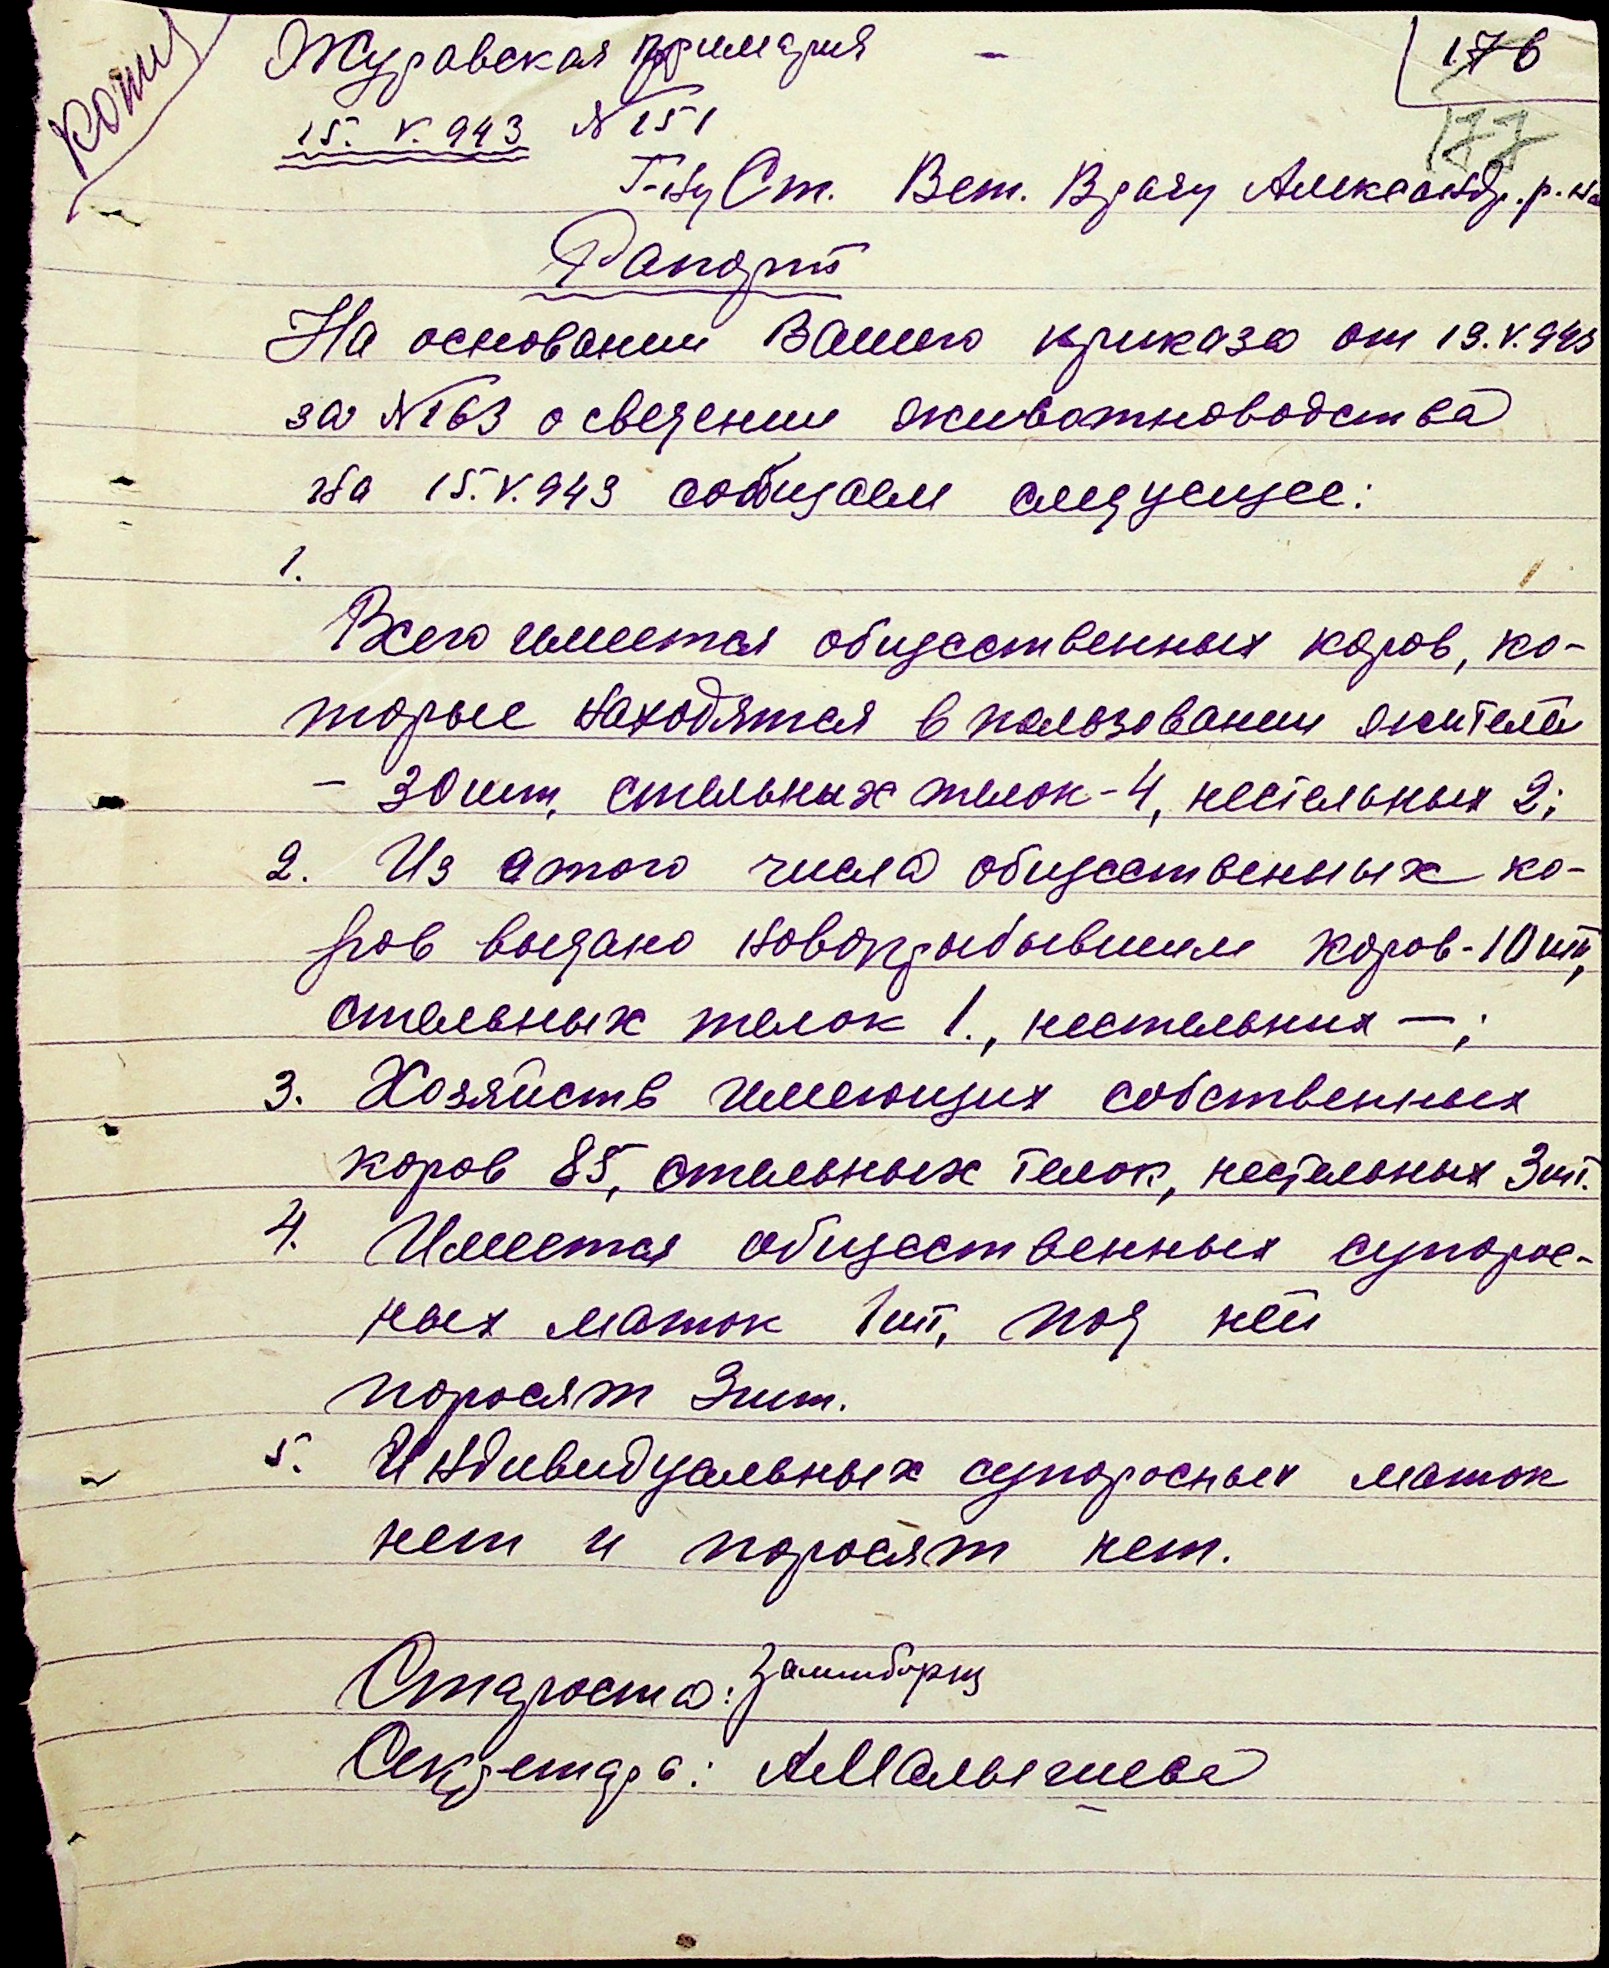 Копия
Журавская примария
176
15. V. 943 N 151
177
Г-ну Ст. Вет. Врачу Александр. р-на
Рапорт
На основании Вашего приказа от 13.V.943
за N163 о сведении животноводства
на 15.V.943 сообщаем следующее:
1.
Всего имеется общественных коров, ко-
торые находятся в пользовании жителей
- 30 шт, стельных телок-4, нестельных 2;
2. Из этого числа общественных ко-
ров выдано новоприбывшим коров-10 шт,
стельных телок 1., нестельных —;
3. Хозяйств имеющих собственных
коров 85, стельных телок, нестельных 3 шт.
4. Имеется общественных супорос-
ных маток 1 шт, под ней
поросят 3 шт.
5. Индивидуальных супоросных маток
нет и поросят нет.
Староста:
Секретарь: А Малышева